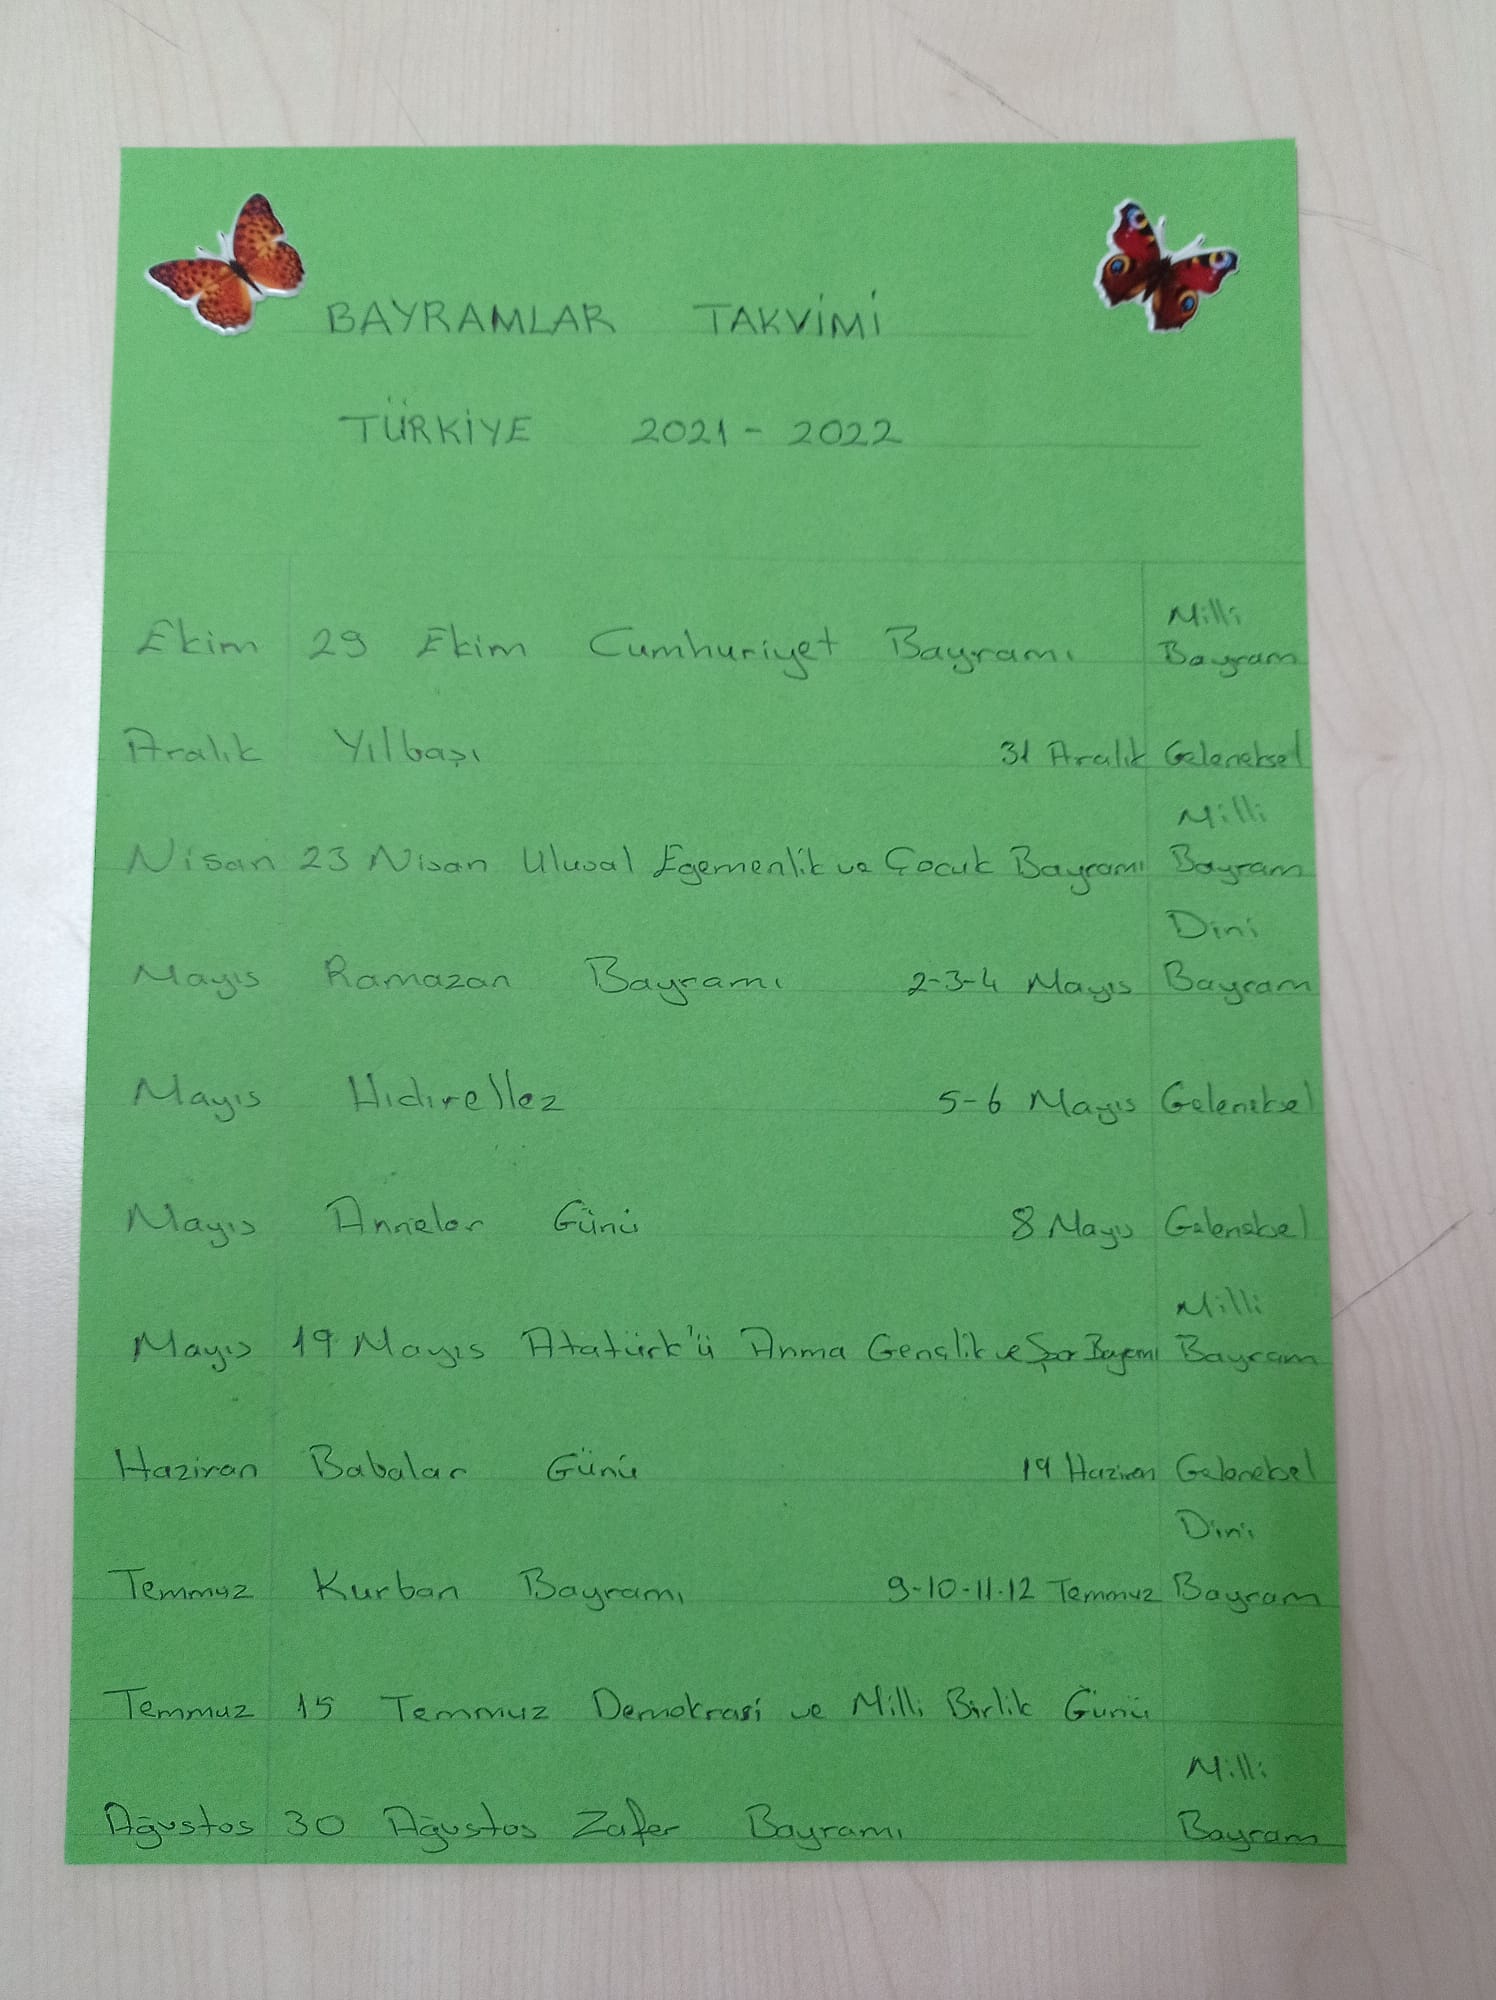 BAYRAMLAR TAKVİMİ
TÜRKİYE 2021-2022
Ekim 29 Ekim Cumhuriyet Bayramı Milli Bayram
Aralık Yılbaşı 31 Aralık Geleneksel
Nisan 23 Nisan Ulusal Egemenlik ve Çocuk Bayramı Milli Bayram
Mayıs Ramazan Bayramı 2-3-4 Mayıs Dini Bayram
Mayıs Hıdırellez 5-6 Mayıs Geleneksel
Mayıs Anneler Günü 8 Mayıs Geleneksel
Mayıs 19 Mayıs Atatürk'ü Anma Gençlik ve Spor Bayramı Milli Bayram
Haziran Babalar Günü 19 Haziran Geleneksel
Temmuz Kurban Bayramı 9-10-11-12 Temmuz Dini Bayram
Temmuz 15 Temmuz Demokrasi ve Milli Birlik Günü
Ağustos 30 Ağustos Zafer Bayramı Milli Bayram